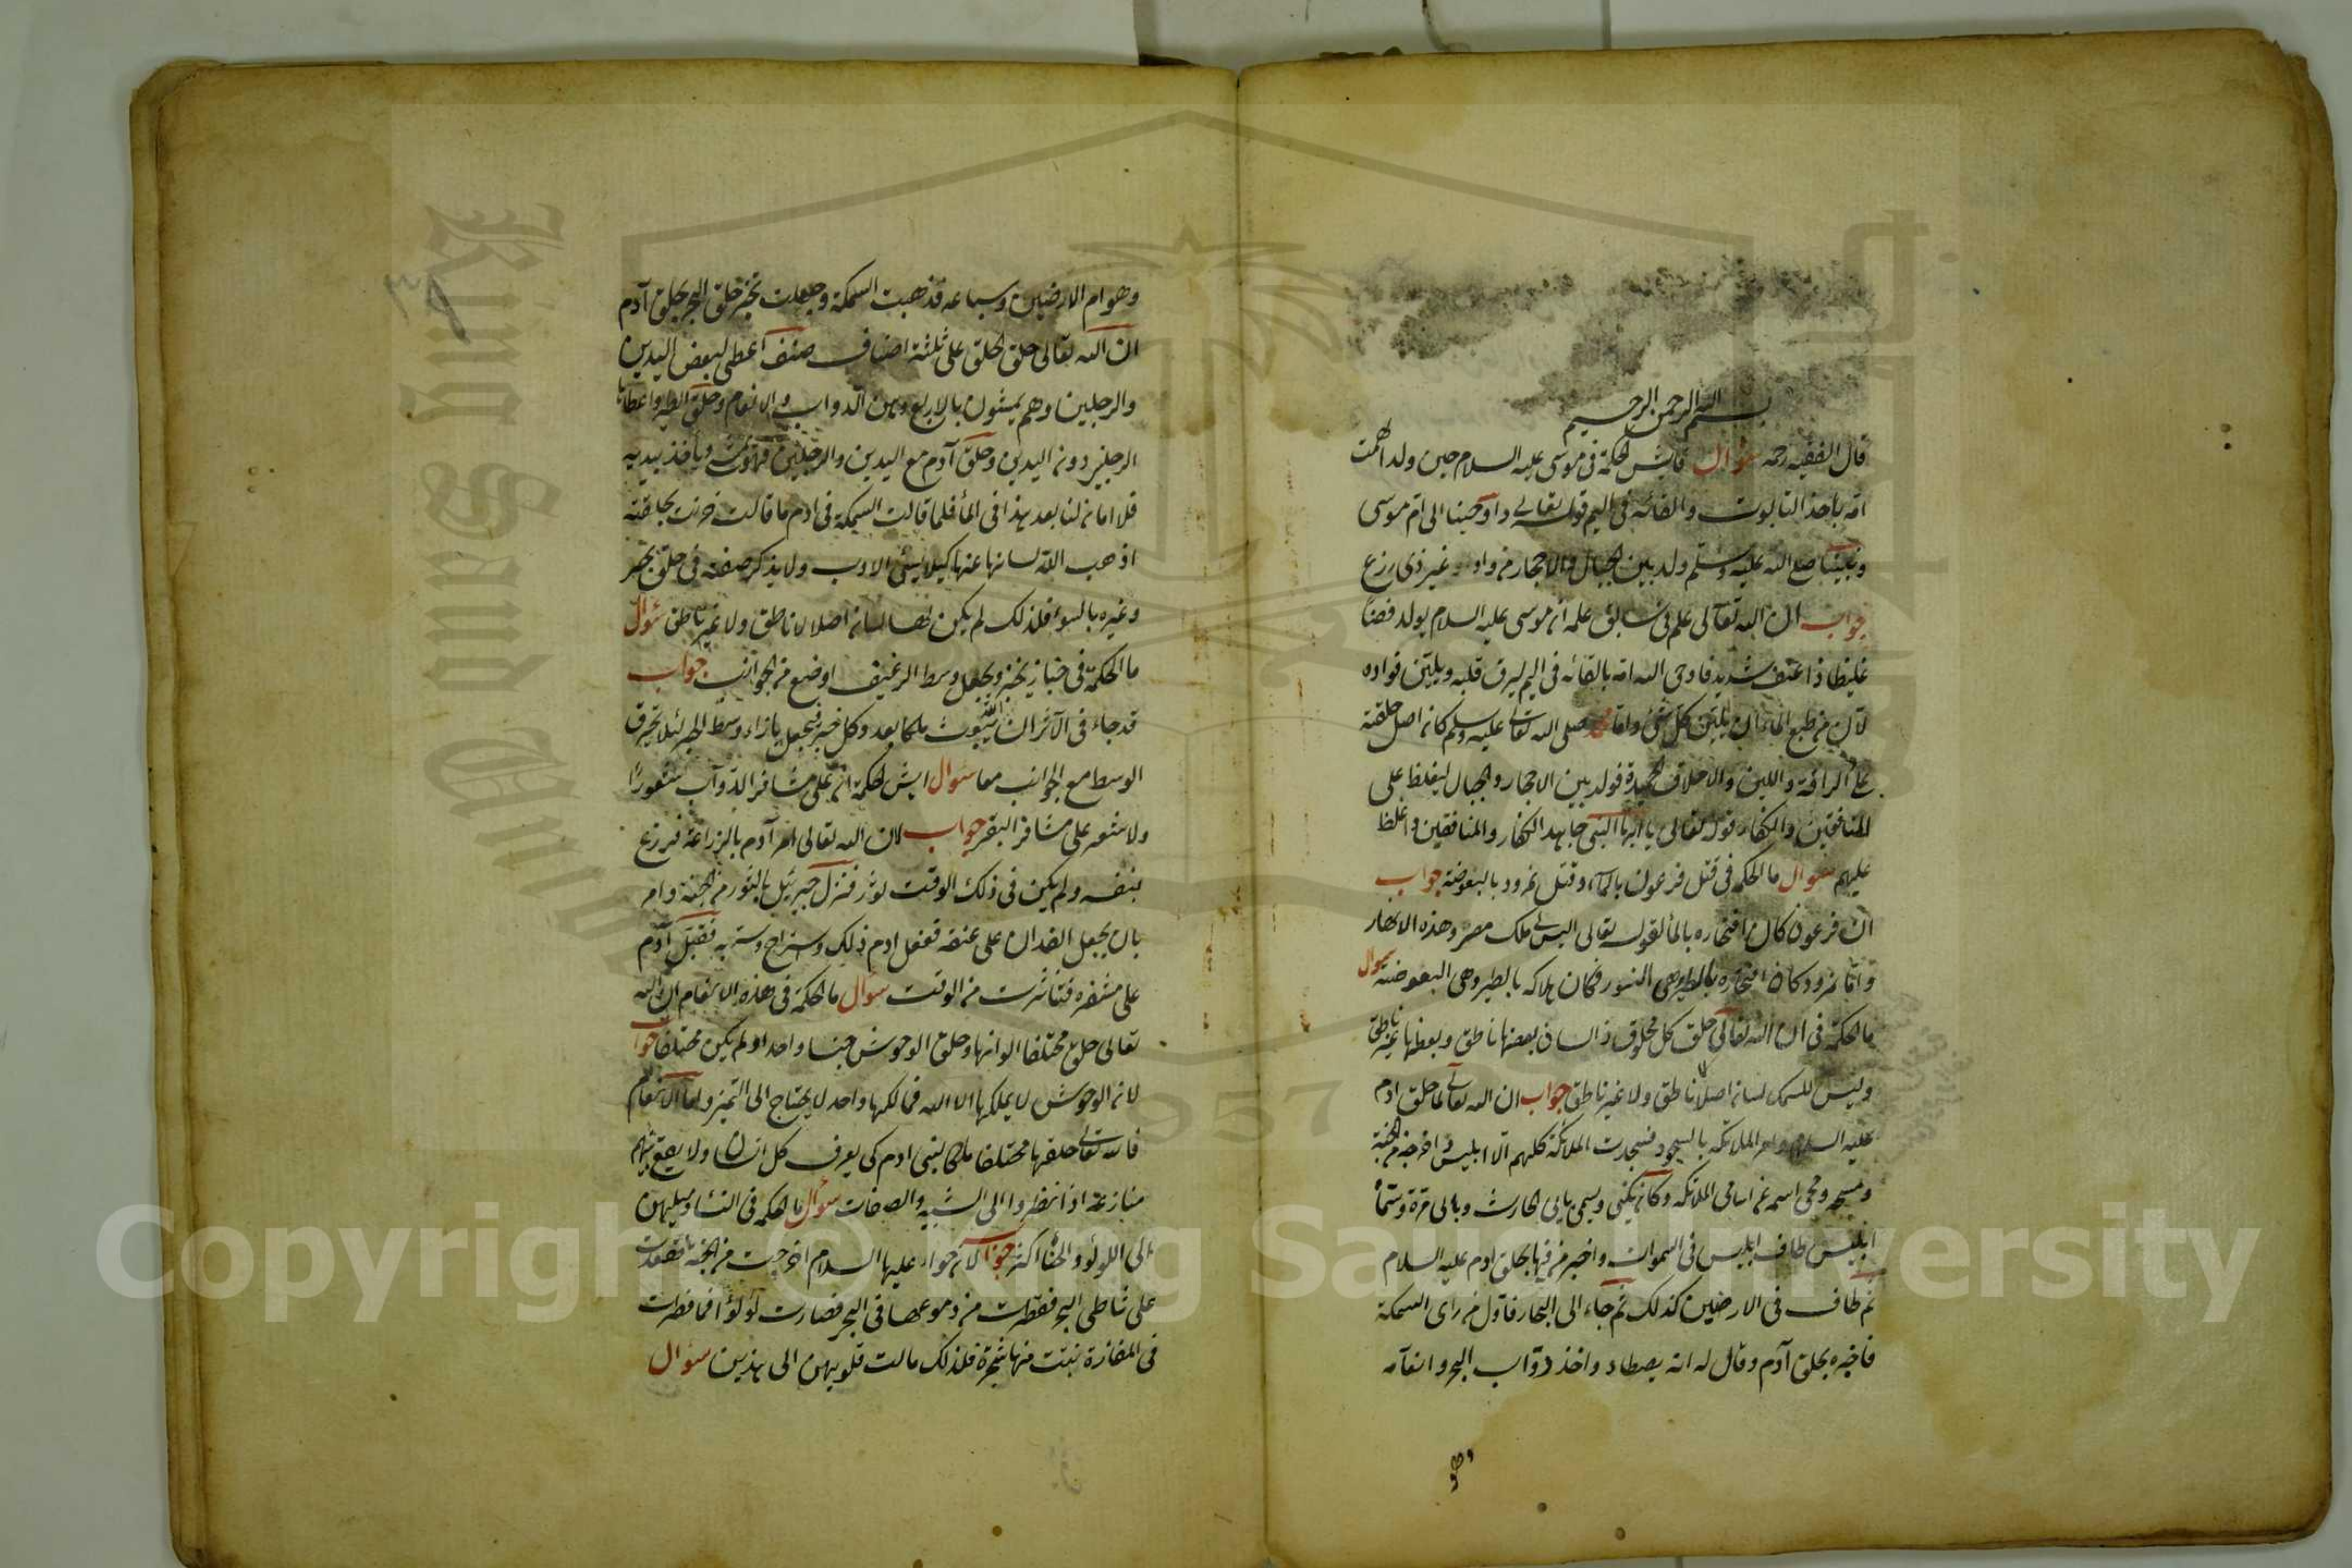 بسم الله الرحمن الرحيم
قال الفقيه رحمه سؤال فايش الحكمة فى موسى عليه السلام حين ولد الهمت
امه باخذ التابوت والقائه فى اليم قوله تعالى واوحينا الى ام موسى
ونبينا صلع الله عليه وسلم ولد بين الجبال والاحجار من واد غير ذى زرع
جواب ان الله تعالى علم فى سابق علمه ان موسى عليه السلام يولد فضا
غليظا ذا عنف شديد فاوحى الله امه بالقائه فى اليم ليرق قلبه ويلين فواده
لان من طبع الماء ان يلين كل شئ واما محمد صلى الله تعالى عليه وسلم كان اصل خلقته
على الرافة واللين والاخلاق الحميدة فولد بين الاحجار والجبال ليغلظ على
المنافقين والكفار قوله تعالى يا ايها النبى جاهد الكفار والمنافقين واغلظ
عليهم سؤال ما الحكمة فى قتل فرعون بالماء وقتل نمرود بالبعوضة جواب
ان فرعون كان افتخاره بالماء لقوله تعالى اليس لى ملك مصر وهذه الانهار
واما نمرود كان افتخاره بالطير وهى النسور فكان هلاكه بالطير وهى البعوضة سؤال
ما الحكمة فى ان الله تعالى خلق كل مخلوق ذا لسان بعضها ناطق وبعضها غير ناطق
وليس للسمك لسان اصلا لا ناطق ولا غير ناطق جواب ان الله تعالى لما خلق ادم
عليه السلام وامر الملائكة بالسجود فسجدت الملائكة كلهم الا ابليس فاخرجه من الجنة
ومسخه ومحى اسمه من اسامى الملائكة وكان يكنى ويسمى بابى الحارث وبابى مرة وسماه
ابليس طاف ابليس فى السموات واخبر من فيها بخلق ادم عليه السلام
ثم طاف فى الارضين كذلك ثم جاء الى البحار فاول من راى السمكة
فاخبره بخلق آدم وقال له انه يصطاد واخذ دواب البحر وانعامه
وهو
وهوام الارضين وسباعه فذهبت السمكة وجعلت تخبر خلق البحر بخلق آدم
ان الله تعالى خلق الخلق على ثلثة اصناف صنف اعطى لبعض اليدين
والرجلين وهم يمشون بالاربع وهن الدواب والانعام وخلق الطير واعطاها
الرجلين دون اليدين وخلق آدم مع اليدين والرجلين فهو يمشى وياخذ بيديه
فلا امان لنا بعد هذا فى الماء فلما قالت السمكة فى ادم ما قالت خزنت بخلقته
اذهب الله لسانها عنها كيلا يسئ الادب ولا يذكر صفته فى خلق بحر
وغيره بالسوء فلذلك لم يكن لها لسان اصلا لا ناطق ولا غير ناطق سؤال
ما الحكمة فى خباز يخبز ويجعل وسط الرغيف اوضع من الجوانب جواب
قد جاء فى الآثر ان ملكا بعد وكل خبز فيجعل بازاء وسط الخبز لئلا تحرق
الوسط مع الجوانب معا سؤال ايش الحكمة ان على مشافر الدواب شعورا
ولا شعر على مشافر البقر جواب لان الله تعالى امر آدم بالزراعة فزرع
بنفسه ولم يكن فى ذلك الوقت ثور فنزل جبرئيل بالثور من الجنة وامر
بان يجعل الفدان على عنقه ففعل ادم ذلك واستراح وسر به فقبل آدم
على مشفره فتناثرت من الوقت سؤال ما الحكمة فى هذه الانعام ان الله
تعالى خلق مختلفا الوانها وخلق الوحوش جنسا واحدا ولم يكن مختلفا جواب
لان الوحوش لا يملكها الا الله فمالكها واحد لا يحتاج الى التميز واما الانعام
فالله تعالى خلقها مختلفا ملكا لبنى ادم كى يعرف كل انسان ولا يقع بينهم
منازعة اذا نظروا الى الشبه والصفات سؤال ما الحكمة فى النساء وميلهن
الى اللؤلؤ والحناء اكثر جواب لان حواء عليها السلام اخرجت من الجنة فقعدت
على شاطى البحر فقطرت من دموعها فى البحر فصارت لؤلؤا فما قطرت
فى المفازة نبتت منها شجرة فلذلك مالت قلوبهن الى هذين سؤال
King Saud University
1957
Copyright © King Saud University